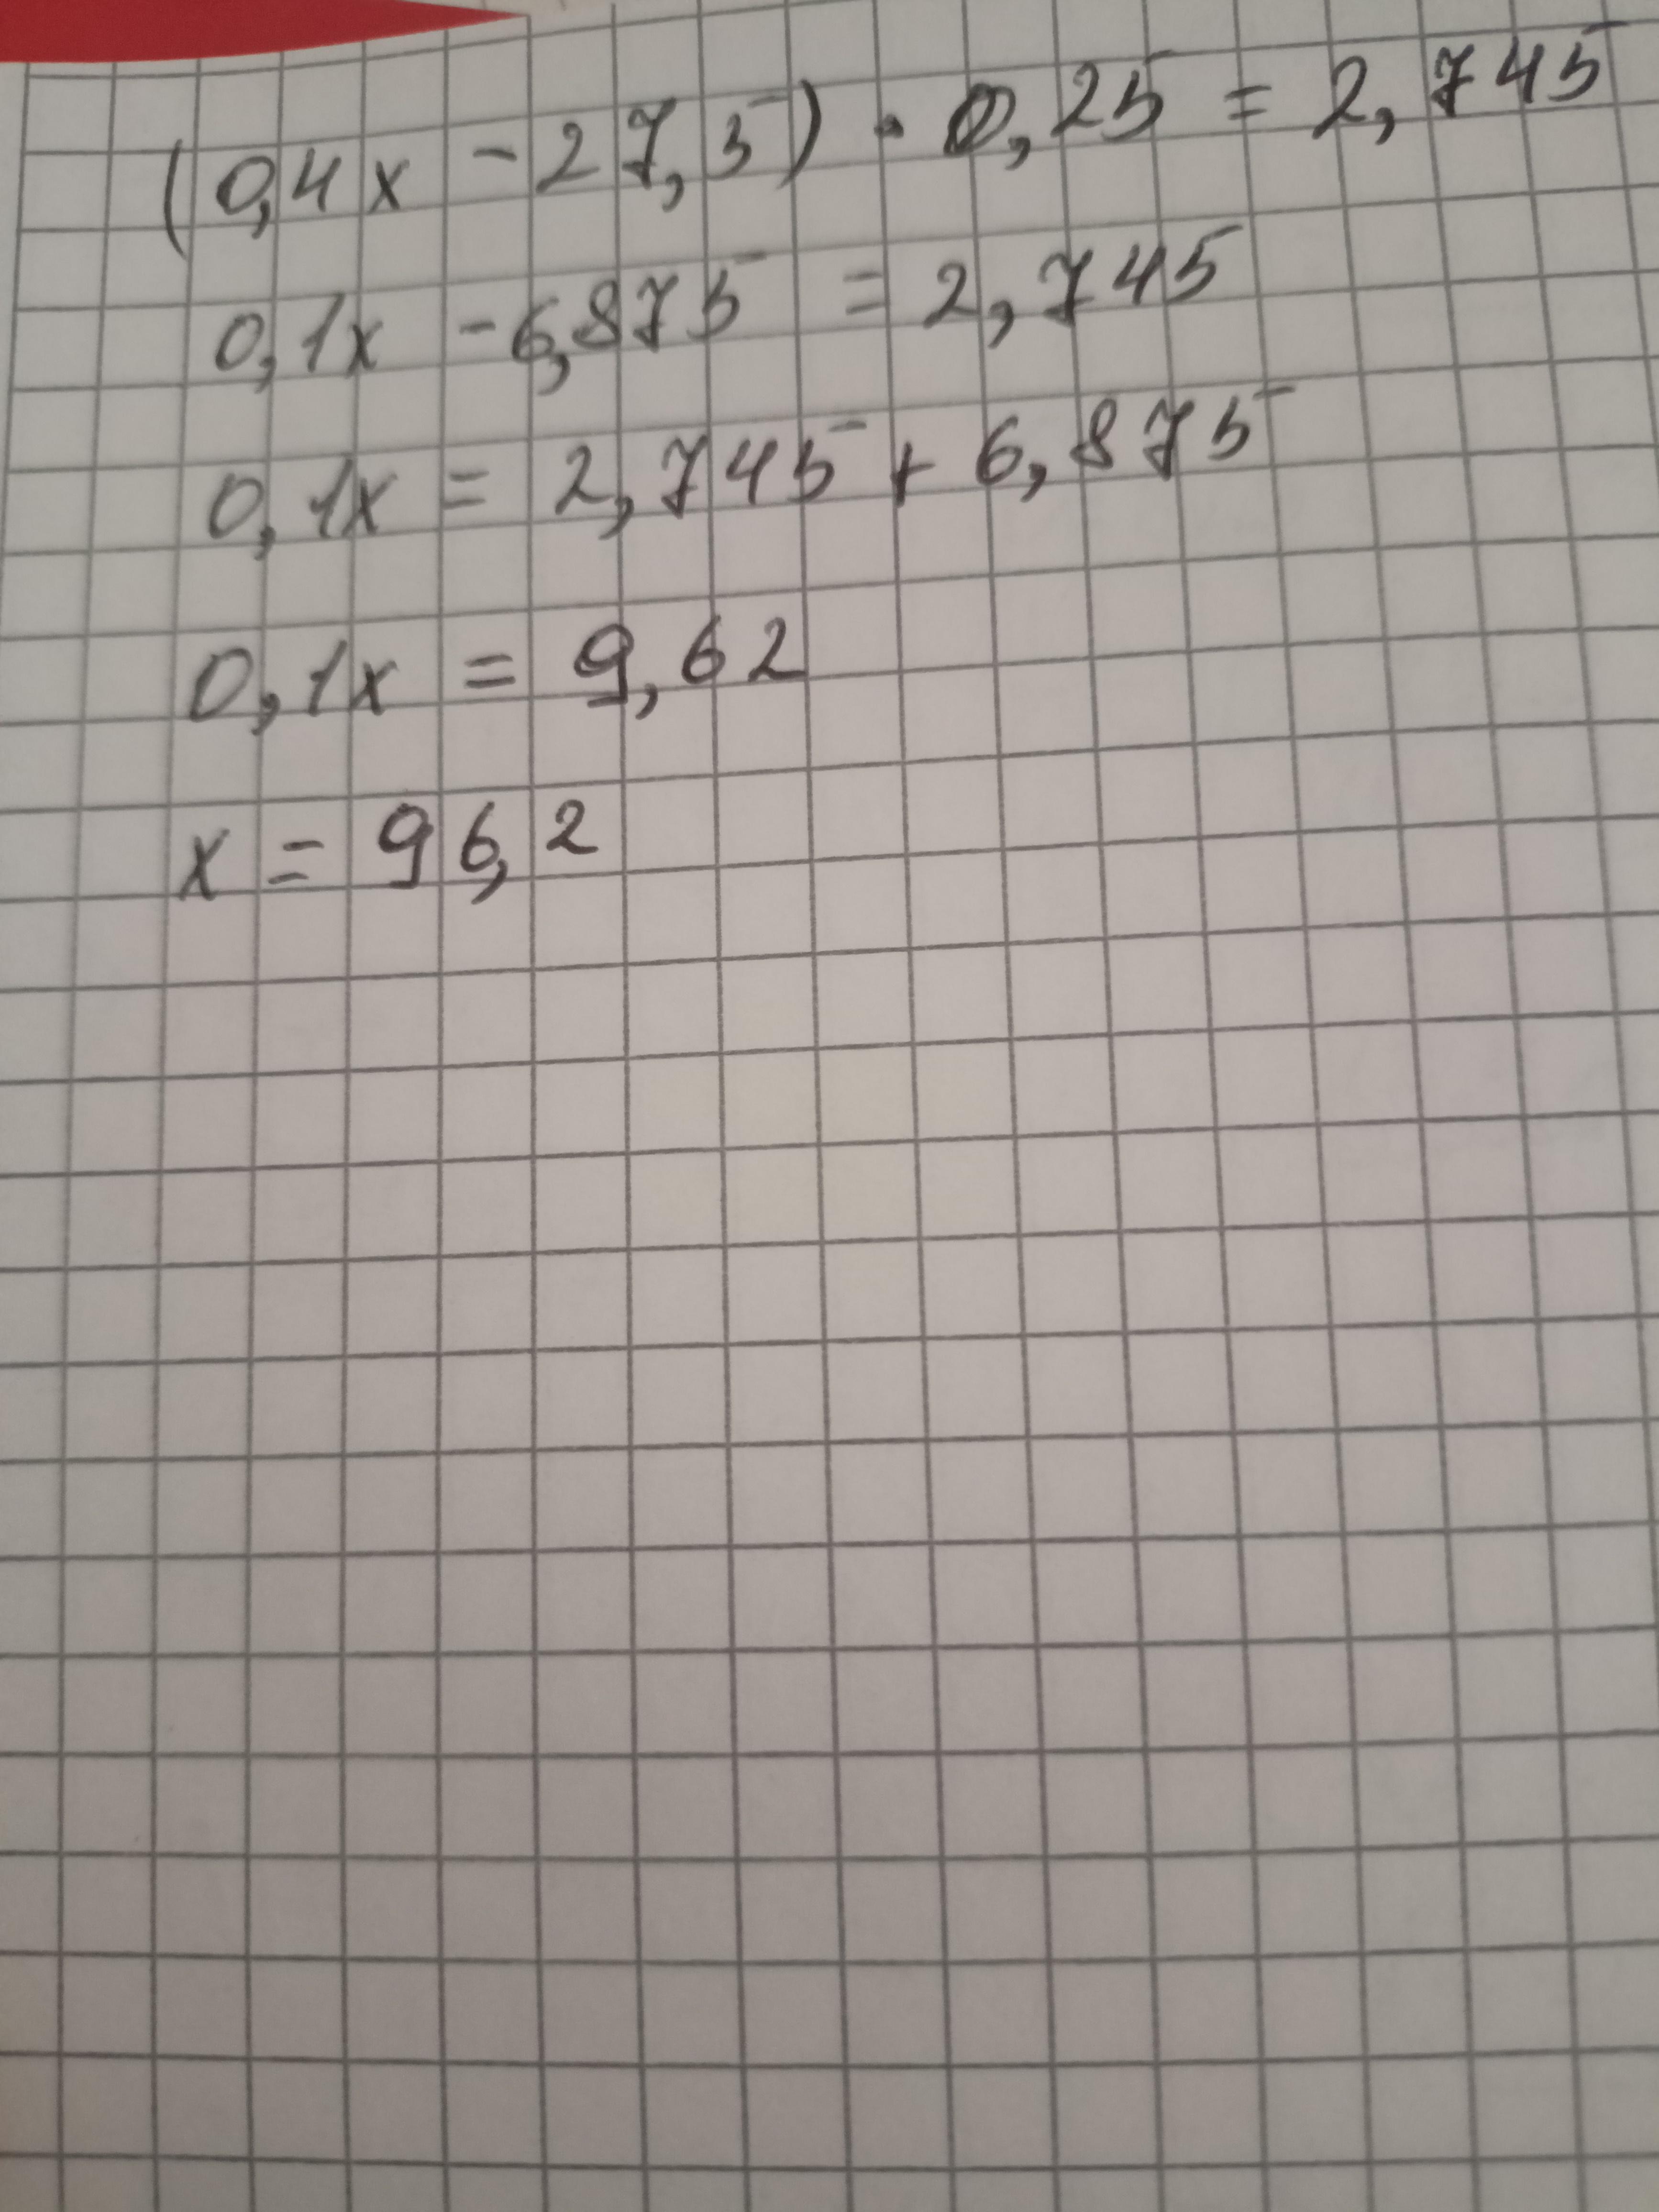 (0,4x - 27,5) · 0,25 = 2,745
0,1x - 6,875 = 2,745
0,1x = 2,745 + 6,875
0,1x = 9,62
x = 96,2